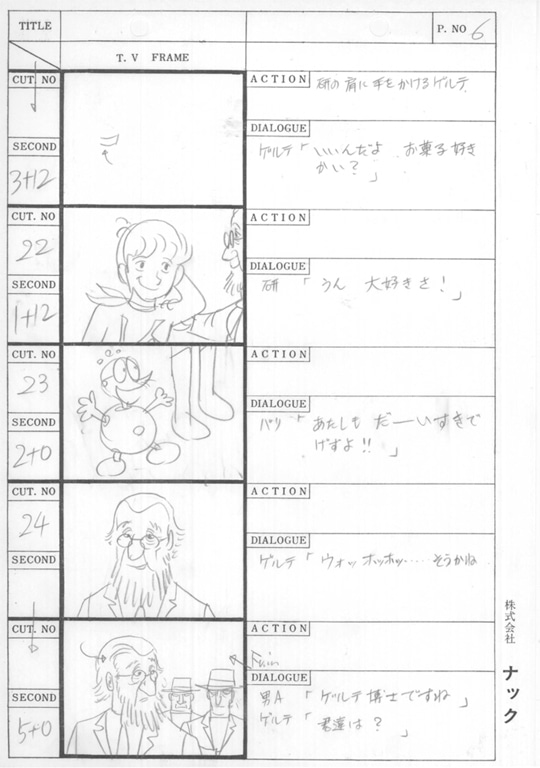 TITLE
P. NO 6
T. V FRAME
CUT. NO
ACTION 研の肩に手をかけるゲルテ
SECOND
3+12
DIALOGUE
ゲルテ「いいんだよ お菓子好き
かい？」
CUT. NO
22
ACTION
SECOND
1+12
DIALOGUE
研「うん 大好きさ！」
CUT. NO
23
ACTION
SECOND
2+0
DIALOGUE
パリ「あたしも だーいすきで
げすよ!!」
CUT. NO
24
ACTION
SECOND
DIALOGUE
ゲルテ「ウォッホッホッ……そうかね
CUT. NO
ACTION
SECOND
5+0
DIALOGUE
男A「ゲルテ博士ですね」
ゲルテ「君達は？」
株式会社 ナック